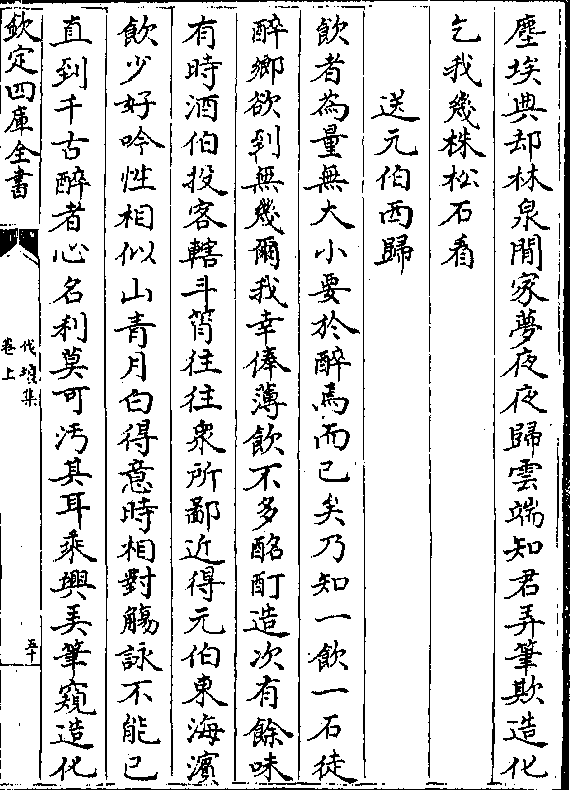 塵埃典却林泉間家夢夜夜歸雲端知君弄筆欺造化
乞我幾株松石看
送元伯西歸
飲者為量無大小要於醉焉而已矣乃知一飲一石徒
醉鄉欲到無幾爾我幸俸薄飲不多酩酊造次有餘味
有時酒伯投客轄斗筲往往衆所鄙近得元伯東海濱
飲少好吟性相似山青月白得意時相對觴詠不能已
直到千古醉者心名利莫可汚其耳乘興弄筆窺造化
欽定四庫全書
伐檀集
卷上
五十